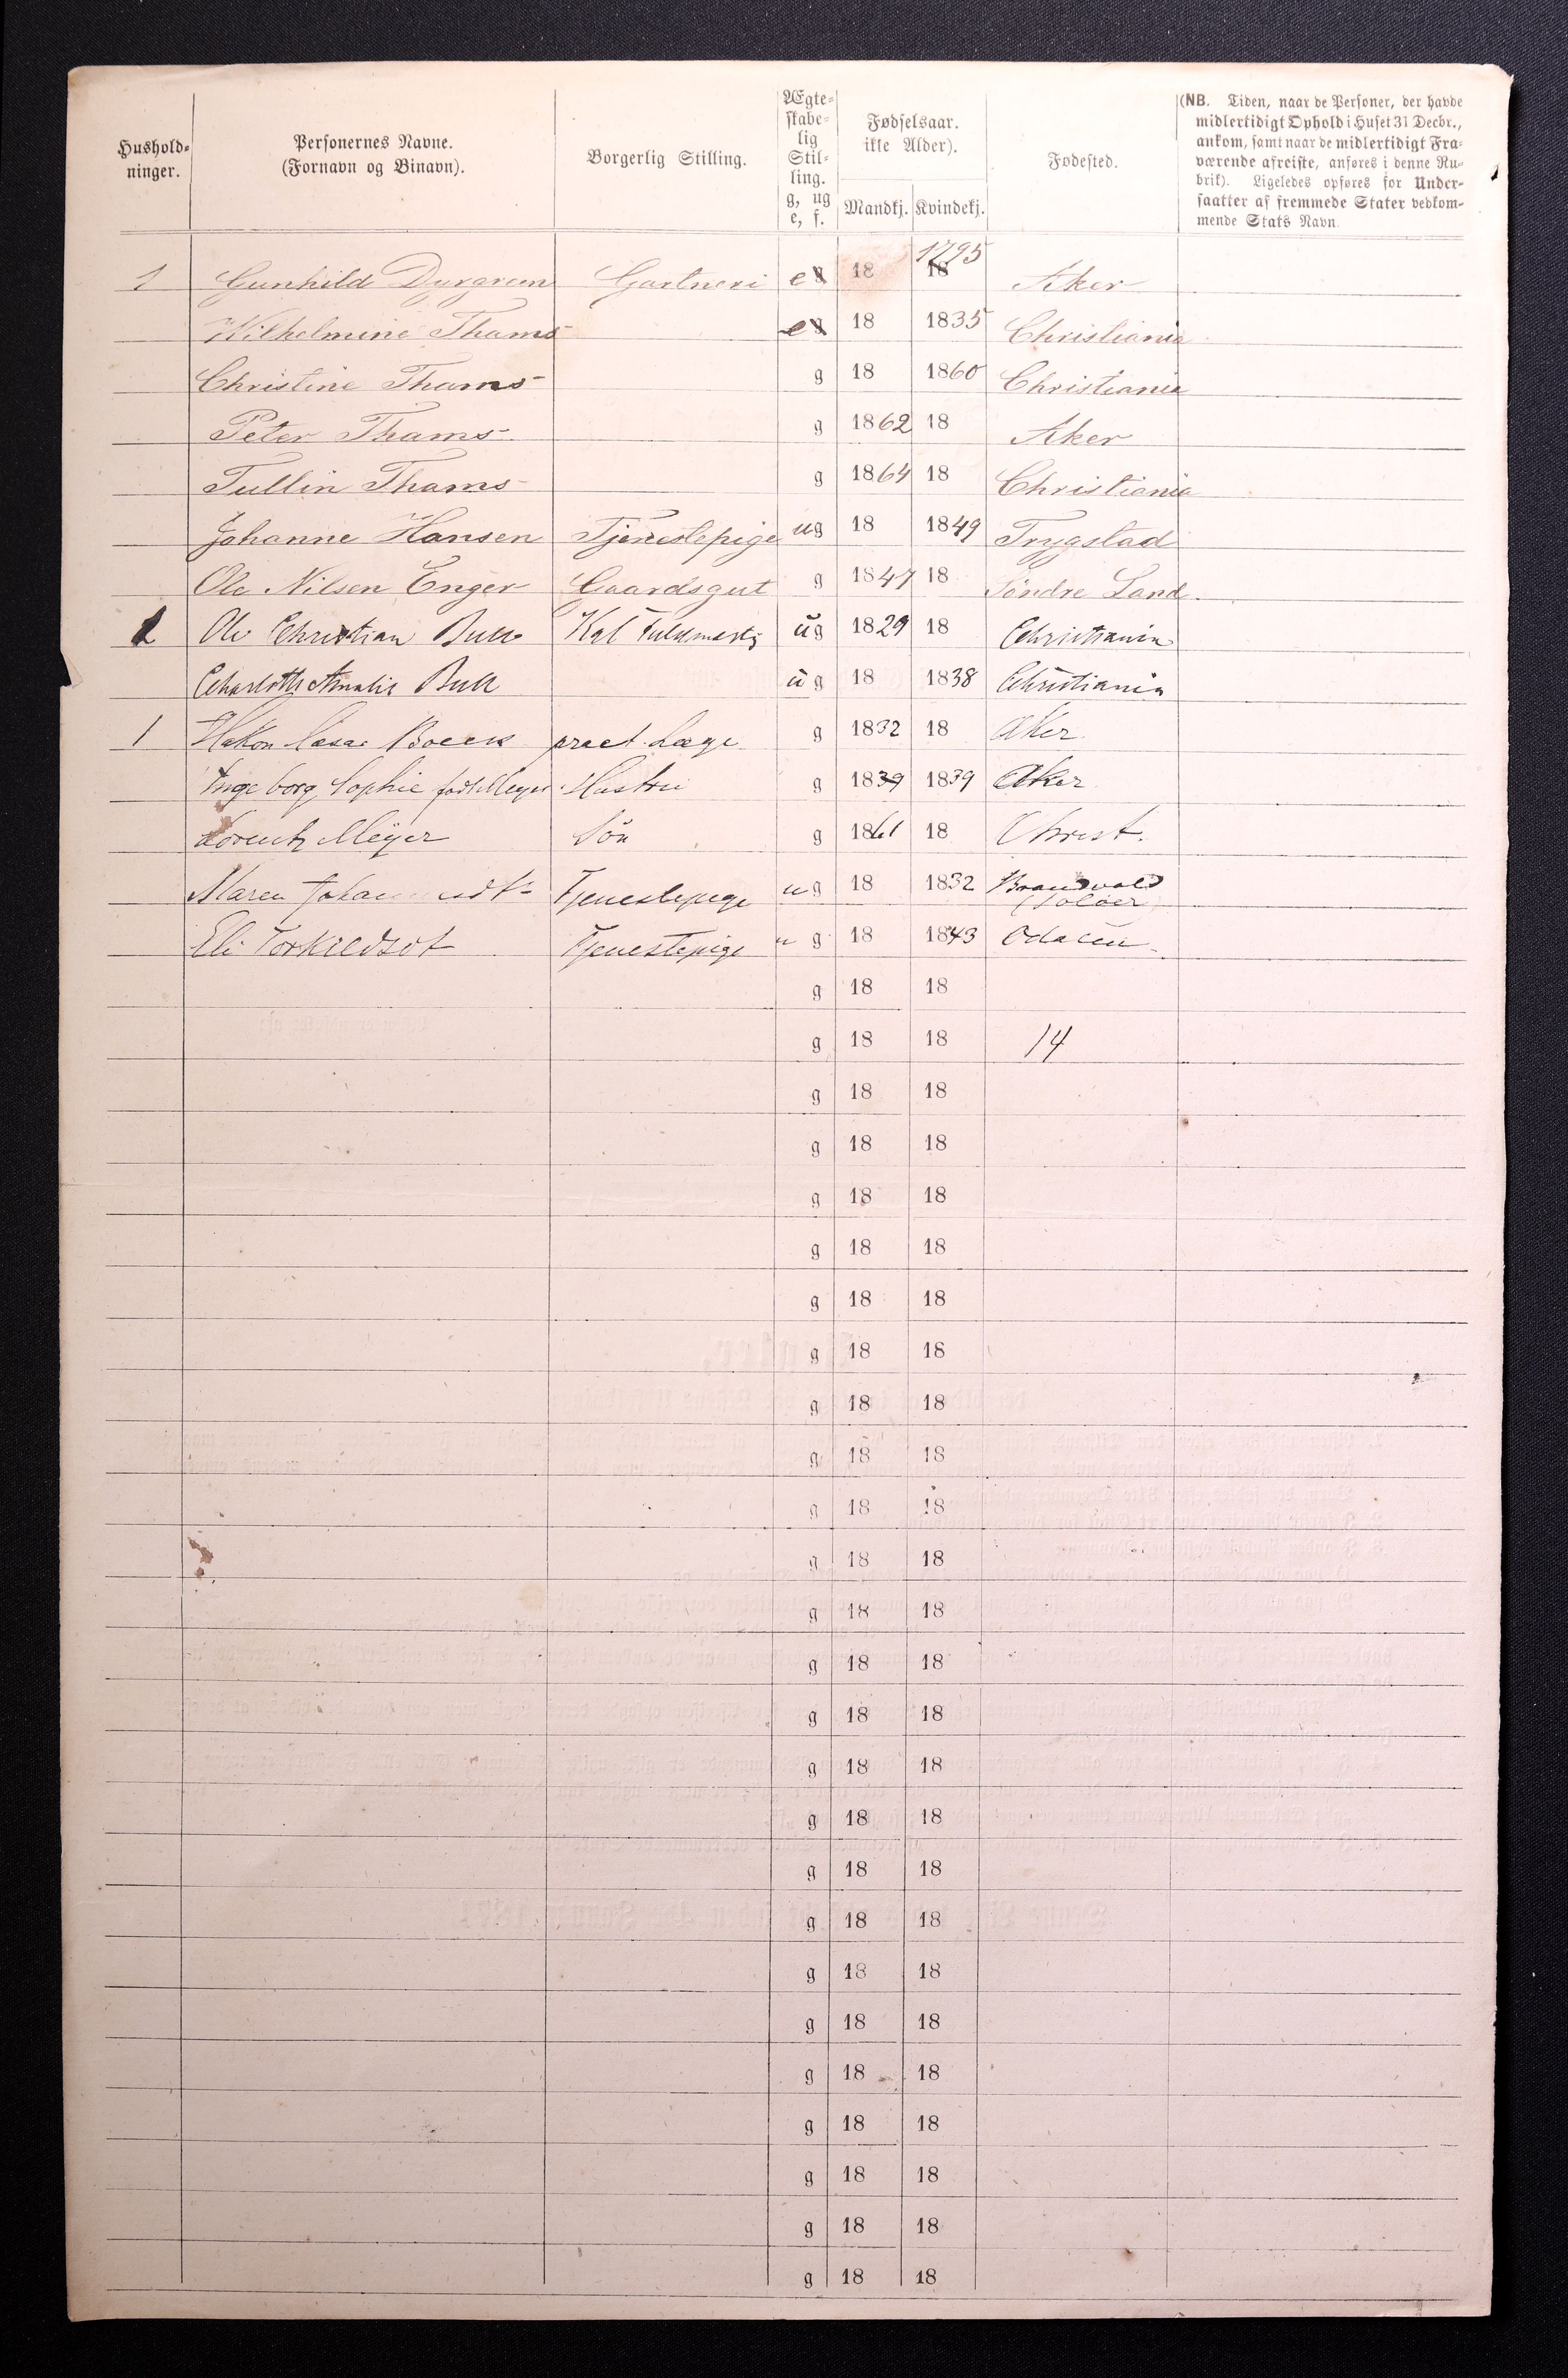 Hushold-
ninger.
Personernes Navne.
(Fornavn og Binavn).
Borgerlig Stilling.
Ægte-
skabe-
lig
Stil-
ling.
g, ug
e, f.
Fødselsaar.
ikke Alder).
Mandkj. Kvindekj.
Fødested.
(NB. Tiden, naar de Personer, der havde
midlertidigt Ophold i Huset 31 Decbr.,
ankom, samt naar de midlertidigt Fra-
værende afreiste, anføres i denne Ru-
brik). Ligeledes opføres for Under-
saatter af fremmede Stater vedkom-
mende Stats Navn.
1 Gunhild Dyrgreen Gartneri e 18 1795 Aker
Wilhelmine Thams e 18 1835 Christiania
Christine Thams g 18 1860 Christiania
Peter Thams g 1862 18 Aker
Tullin Thams g 1864 18 Christiania
Johanne Hansen Tjenestepige ug 18 1849 Trygstad
Ole Nilsen Enger Gaardsgut g 1847 18 Söndre Land
1 Ole Christian Bull Kgl Fuldmægt ug 1829 18 Christiania
Charlotte Amalie Bull ug 18 1838 Christiania
1 Hakon Cæsar Boeck pract. Læge g 1832 18 Aker
Ingeborg Sophie født Meyer Hustru g 1839 1839 Aker
Lorentz Meyer Sön g 1861 18 Christ.
Maren Tjenestepige ug 18 1832 Brandvold
(Soløer)
Eli Torkildsdt Tjenestepige u g 18 1843 Odalen
g 18 18
g 18 18 14
g 18 18
g 18 18
g 18 18
g 18 18
g 18 18
g 18 18
g 18 18
g 18 18
g 18 18
g 18 18
g 18 18
g 18 18
g 18 18
g 18 18
g 18 18
g 18 18
g 18 18
g 18 18
g 18 18
g 18 18
g 18 18
g 18 18
g 18 18
g 18 18